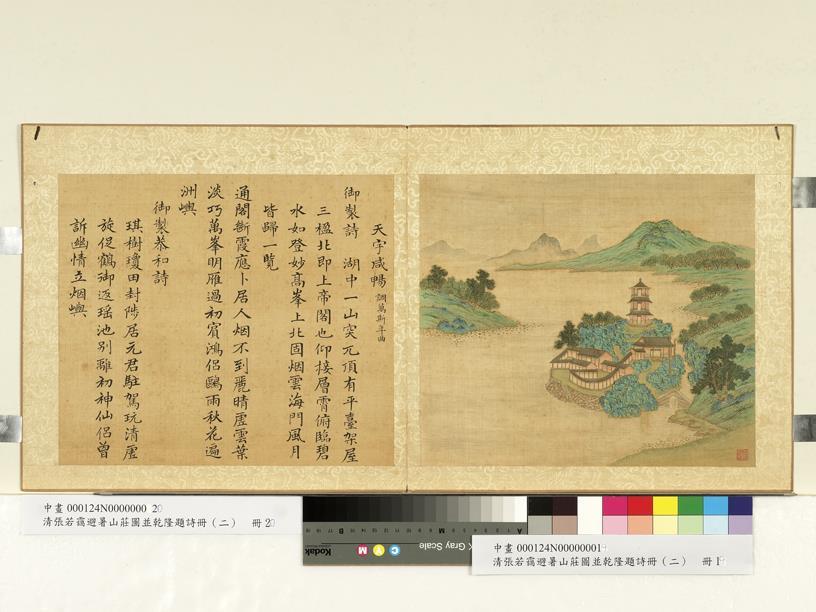 天宇咸暢 調萬斯年曲
御製詩 湖中一山突兀頂有平臺架屋
三楹北即上帝閣也仰接層霄俯臨碧
水如登妙高峯上北固烟雲海門風月
皆歸一覽
通閣斷霞應卜居人烟不到麗晴虛雲葉
淡巧萬峯明雁過初賓鴻侶鷗雨秋花遍
洲嶼
御製恭和詩
琪樹瓊田封陟居元君駐駕玩清虛
旋促鶴御返瑤池別離初神仙侶曾
訴幽情立烟嶼
中畫 000124N0000000 20
清張若靄避暑山莊圖並乾隆題詩冊（二） 冊 20
Kodak Gray Scale
C Y M
A M B
中畫 000124N00000001
清張若靄避暑山莊圖並乾隆題詩冊（二） 冊 1